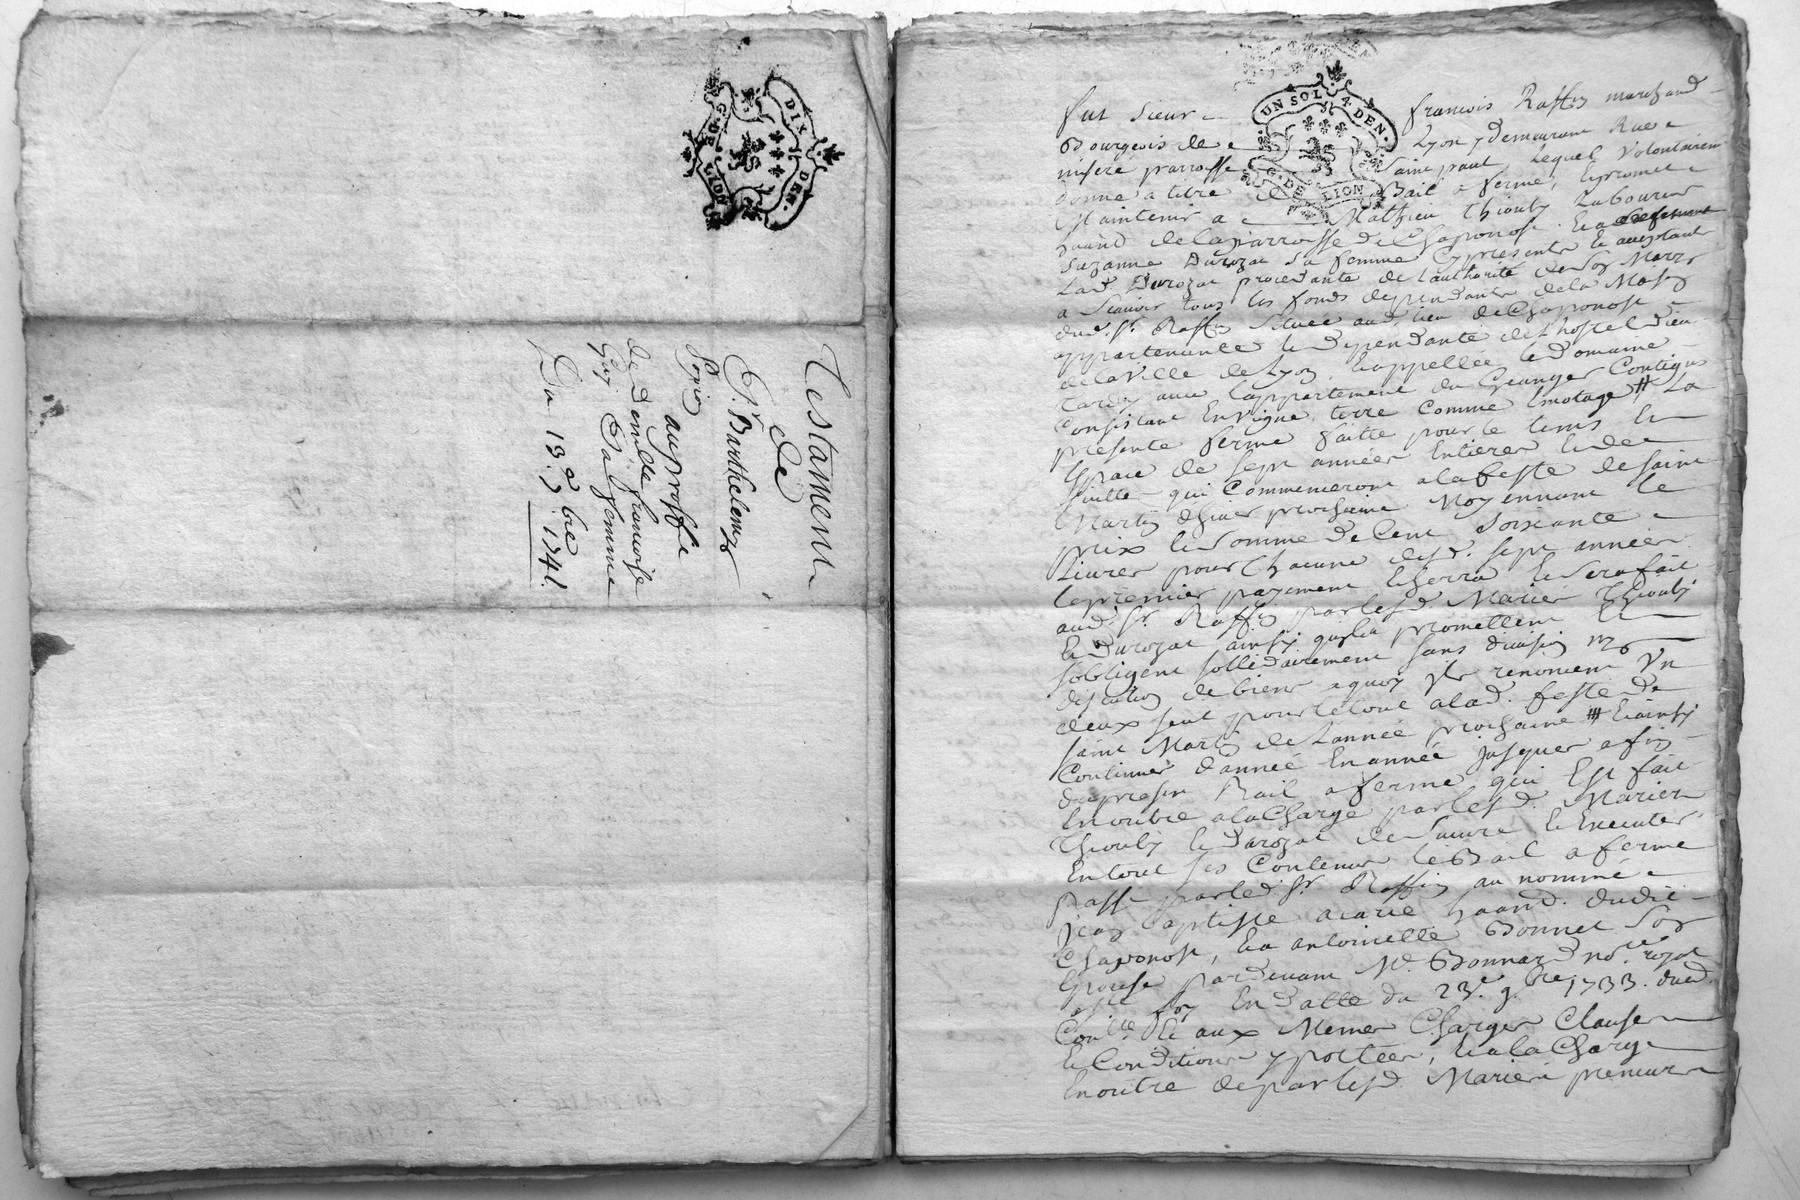 DIX DEN.
G. DE LION
Testament
de
Sr. Barthelemy
Ponin
au proffit
de dem.lle francoise
Guy Sa femme
Du 13e 7bre 1741.
UN SOL 4 DEN.
G. DE LION
fut Sieur francois Raffin marchand
Bourgeois de Lyon y demeurant Rue
misere parroisse Saint paul, Lequel Volontairem
donne a titre de Bail a ferme, et promet
Maintenir a Mathieu Thiouly Laboureur
habitt de la parroisse de Chaponost. et a
Suzanne Durozat Sa femme cy presents et acceptants
Lad. Durozat procedante de l'authorité de Son Mary
a Scavoir tous les fonds dependants de la Maison
dud. Sr. Raffin Située aud. lieu de Chaponost
appartenante et dependante de L'hostel Dieu
de la Ville de Lyon, et appellée le Domaine
Tardy avec l'appartement du Granger Contigus
Consistant En Vigne, terre Comme Emotage # La
presente ferme faitte pour le tems et
Espace de Sept années Entieres et de
Suitte qui Commenceront a la feste de Saint
Martin d'hiver prochaine Moyennant le
prix et Somme de Cent Soixante
Livres pour Chacune desd. Sept années
le premier payement Echerra et Sera fait
aud. Sr. Raffin par lesd. Mariez Thiouly
et Durozat ainsy qu'ils promettent Et
Sobligent Sollidairement Sans division ny
discution de biens a quoy ils renoncent Un
deux Seul pour le tout a lad. feste de
Saint Martin de L'année prochaine # Et ainsy
Continuer d'année En année Jusques a fin
du present Bail a ferme qui Est fait
En outre a la Charge par lesd. Mariez
Thiouly et Durozat de Suivre et Executer
En tout Ses Contenus le Bail a ferme
passé par led. Sr. Raffin au nommé
Jean Baptiste acarie habitt. dudit
Chaponost, Et a antoinette Bonnet Son
Epouse pardevant Me. Bonnard nore. royal
En Datte du 23e. 9bre 1733. dued.
Conlle. Et aux Memes Charges Clauses
et Conditions y portées, Et a la Charge
En outre de par lesd. Mariés preneurs